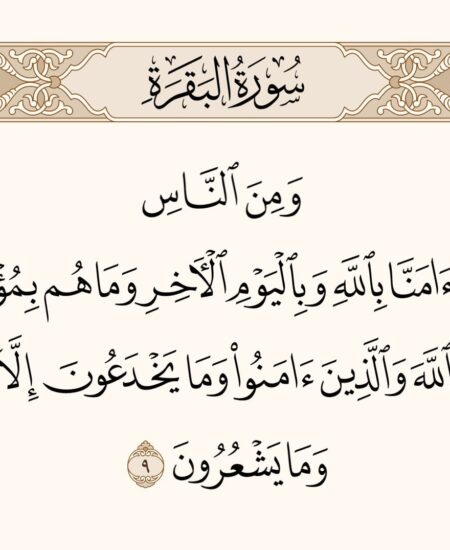 سُورَةُ البَقَرَةِ
وَمِنَ ٱلنَّاسِ
ءَامَنَّا بِٱللَّهِ وَبِٱلۡيَوۡمِ ٱلۡأٓخِرِ وَمَا هُم
ٱللَّهَ وَٱلَّذِينَ ءَامَنُواْ وَمَا يَخۡدَعُونَ
وَمَا يَشۡعُرُونَ ٩